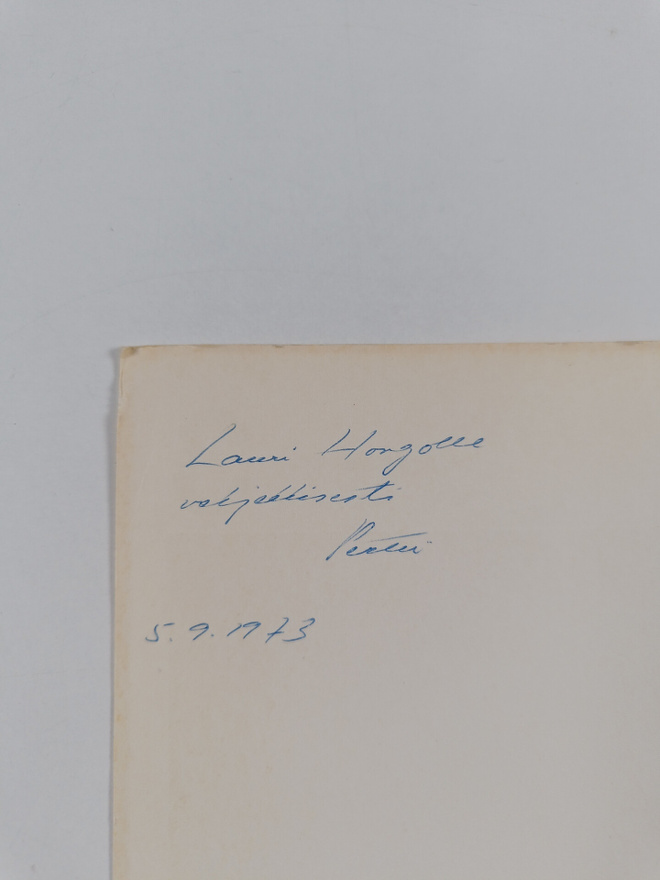 Lauri Hongolle
veljellisesti
Pertti
5.9.1973